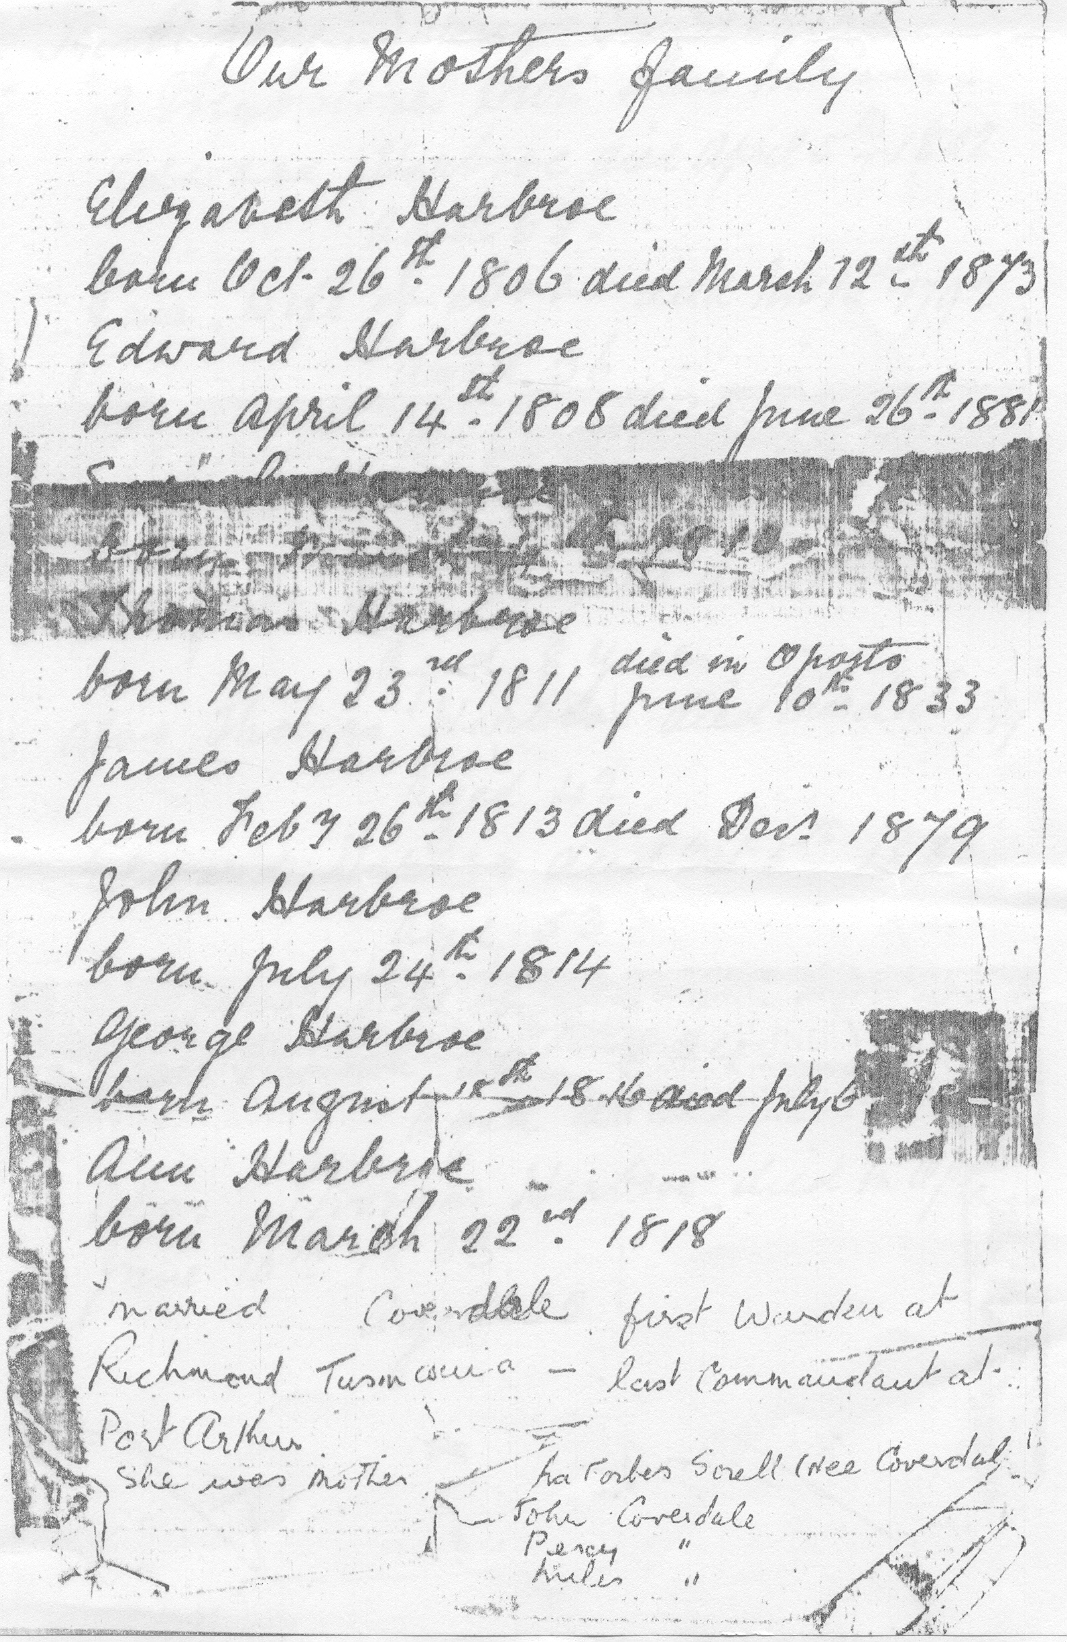 Our Mothers family
Elizabeth Harbroe
born Oct 26st 1806 died March 12th 1873
Edward Harbroe
born April 14st 1808 died June 26th 1881
born 1810
Thomas Harbroe
born May 23rd 1811 died in Oporto
June 10th 1833
James Harbroe
born Feby 26th 1813 died Decr 1879
John Harbroe
born July 24th 1814
George Harbroe
born August 18th 1816 died July 6
Ann Harbroe
born March 22nd 1818
married Coverdale first Warden at
Richmond Tasmania — last Commandant at
Port Arthur
She was mother
Forbes Sorell (nee Coverdal
John Coverdale
Percy "
"